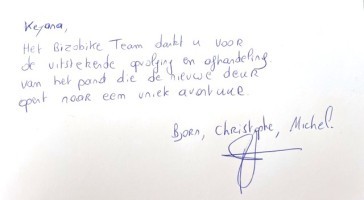 Keyana,
Het Bizobike Team dankt u voor
de uitstekende opvolging en afhandeling
van het pand die de nieuwe deur
opent naar een uniek avontuur.
Bjorn, Christophe, Michel.